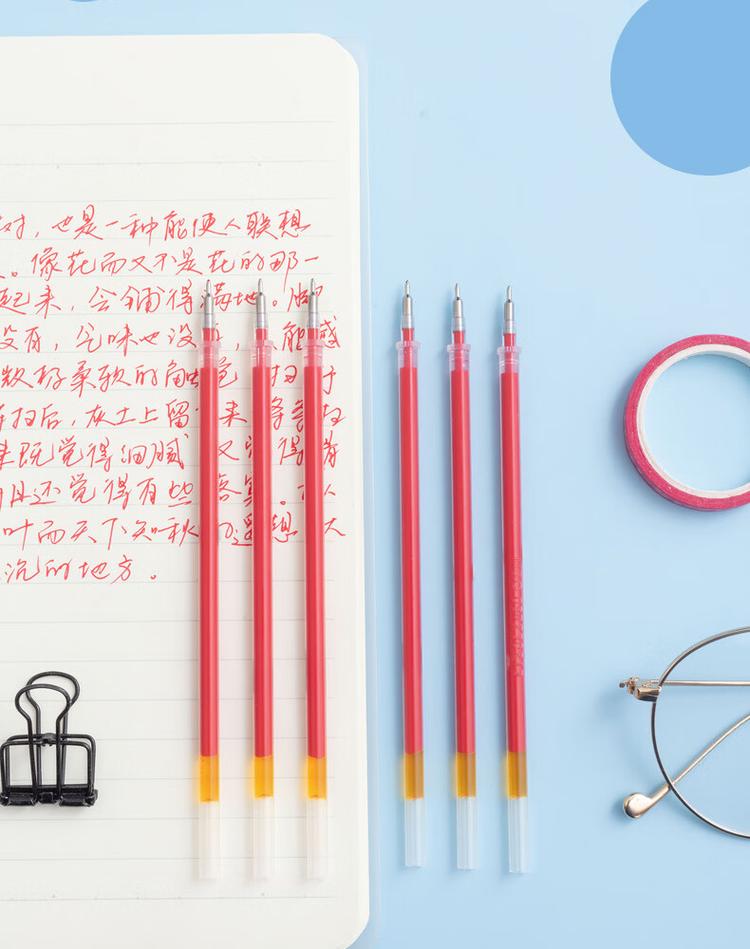 对，也是一种能使人联想
。像花而又不是花的那一
起来，会铺得满地。脚
没有，气味也没有，能感
数极柔软的触觉。扫
扫后，灰土上留 来
既觉得细腻 又觉得
且还觉得有些落寞。
叶而天下知秋 遥想 大
沉的地方。